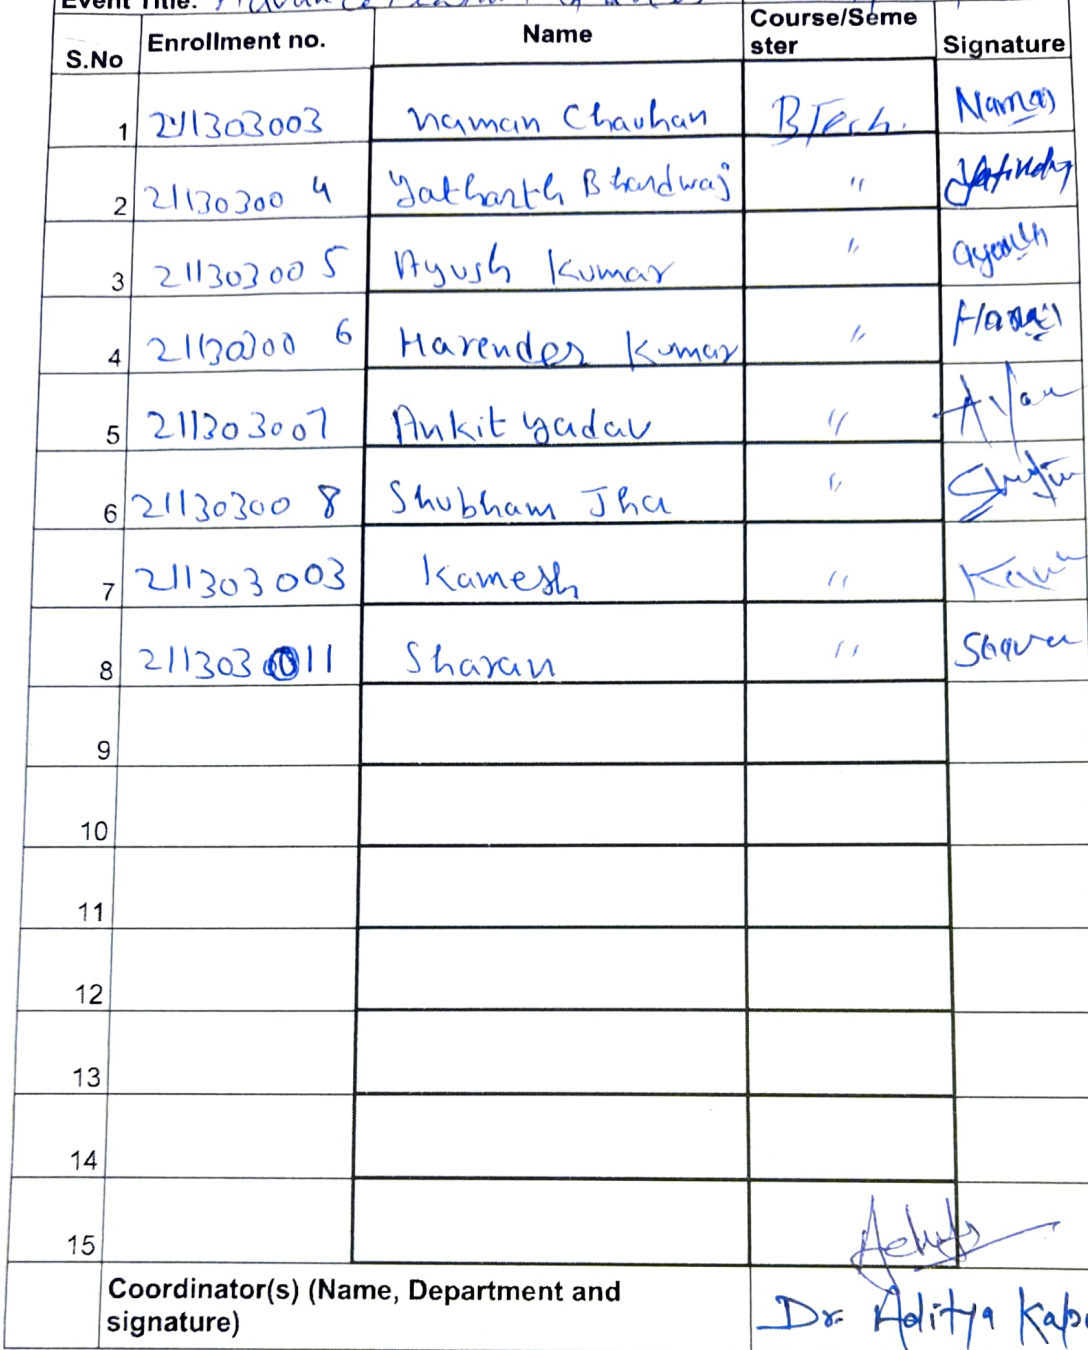 Event Title:
S.No Enrollment no. Name Course/Seme
ster Signature
1 211303003 Naman Chauhan BTech. Naman
2 211303004 Yatharth Bhardwaj "
3 211303005 Ayush Kumar " ayush
4 211303006 Harender Kumar "
5 211303007 Ankit yadav "
6 211303008 Shubham Jha "
7 211303003 Kamesh "
8 211303011 Sharan "
9
10
11
12
13
14
15
Coordinator(s) (Name, Department and
signature) Dr. Aditya